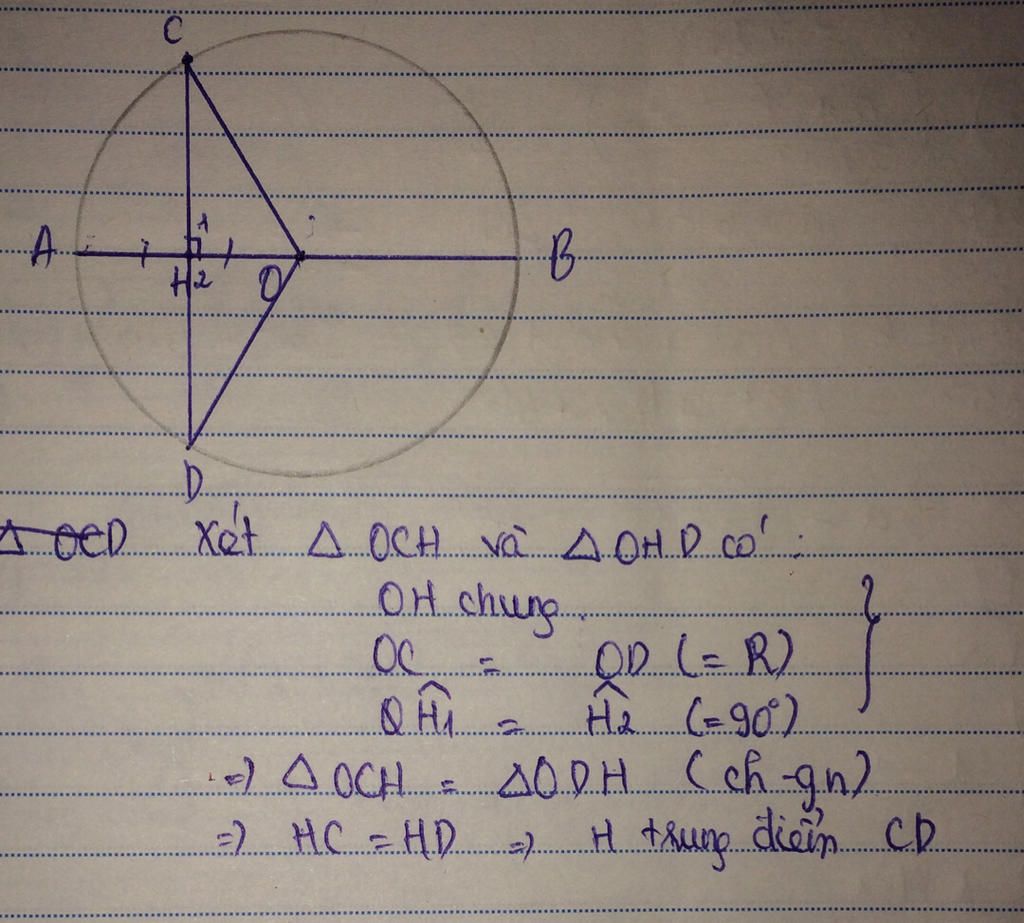 C
A
1
B
H2
O
D
Δ OCD Xét Δ OCH và Δ OHD có :
OH chung.
OC = OD (= R)
Ĥ1 = Ĥ2 (=90°)
=) Δ OCH = Δ ODH (ch-gn)
=) HC = HD =) H trung điểm CD